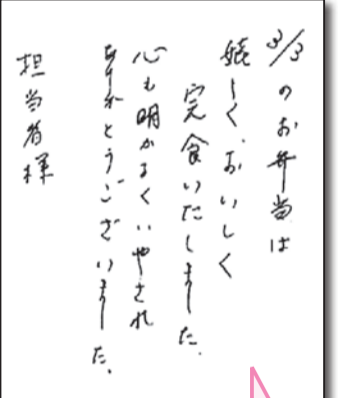 3/3のお弁当は
嬉しく、おいしく
完食いたしました。
心も明かるくいやされ
ありがとうございました。
担当者様